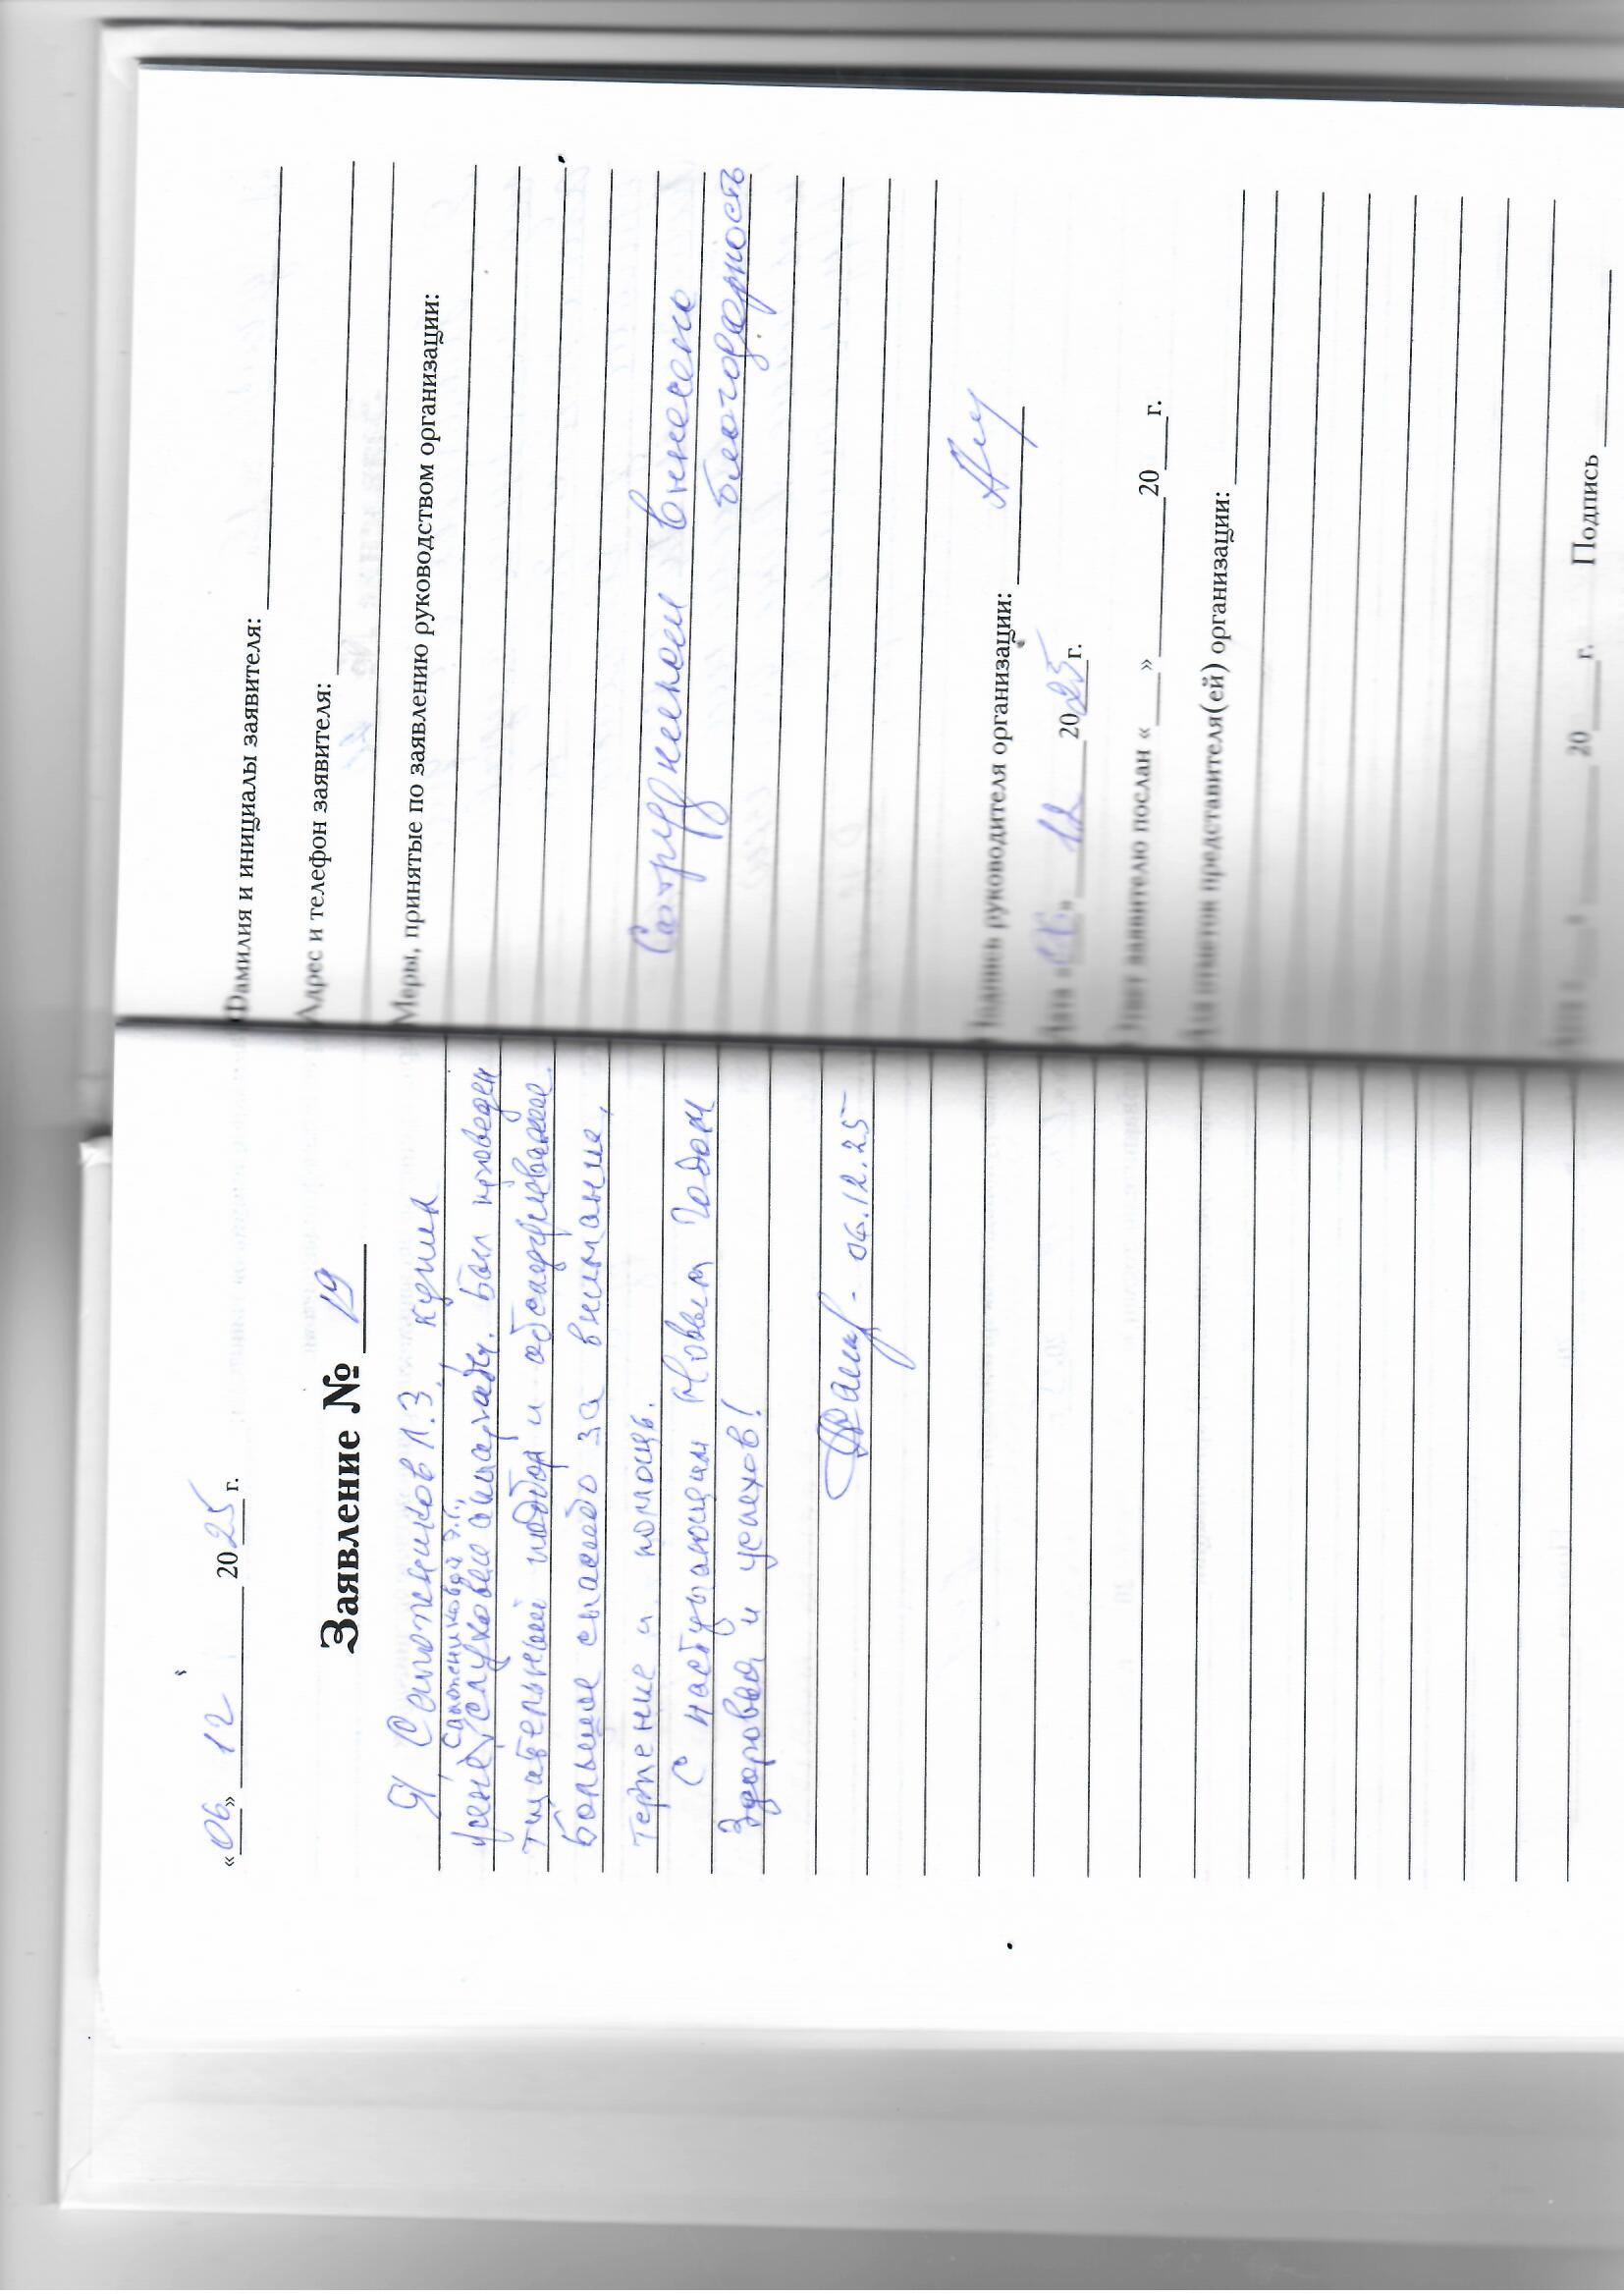 «06» 12 2025 г.
Заявление № 19
Я Сапожников Л.З., купил
Сапожниковой Э.Г.,
жене слуховые аппараты. Был проведен
тщательный подбор и обслуживание.
Большое спасибо за внимание,
терпение и помощь.
С наступающим Новым Годом
Здоровья и успехов!
06.12.25
Фамилия и инициалы заявителя:
Адрес и телефон заявителя:
Меры, принятые по заявлению руководством организации:
Сотрудникам вынесена
благодарность
Подпись руководителя организации:
Дата « » 12 2025 г.
Ответ заявителю послан « » 20 г.
Для отметок представителя(ей) организации:
Дата « » 20 г. Подпись